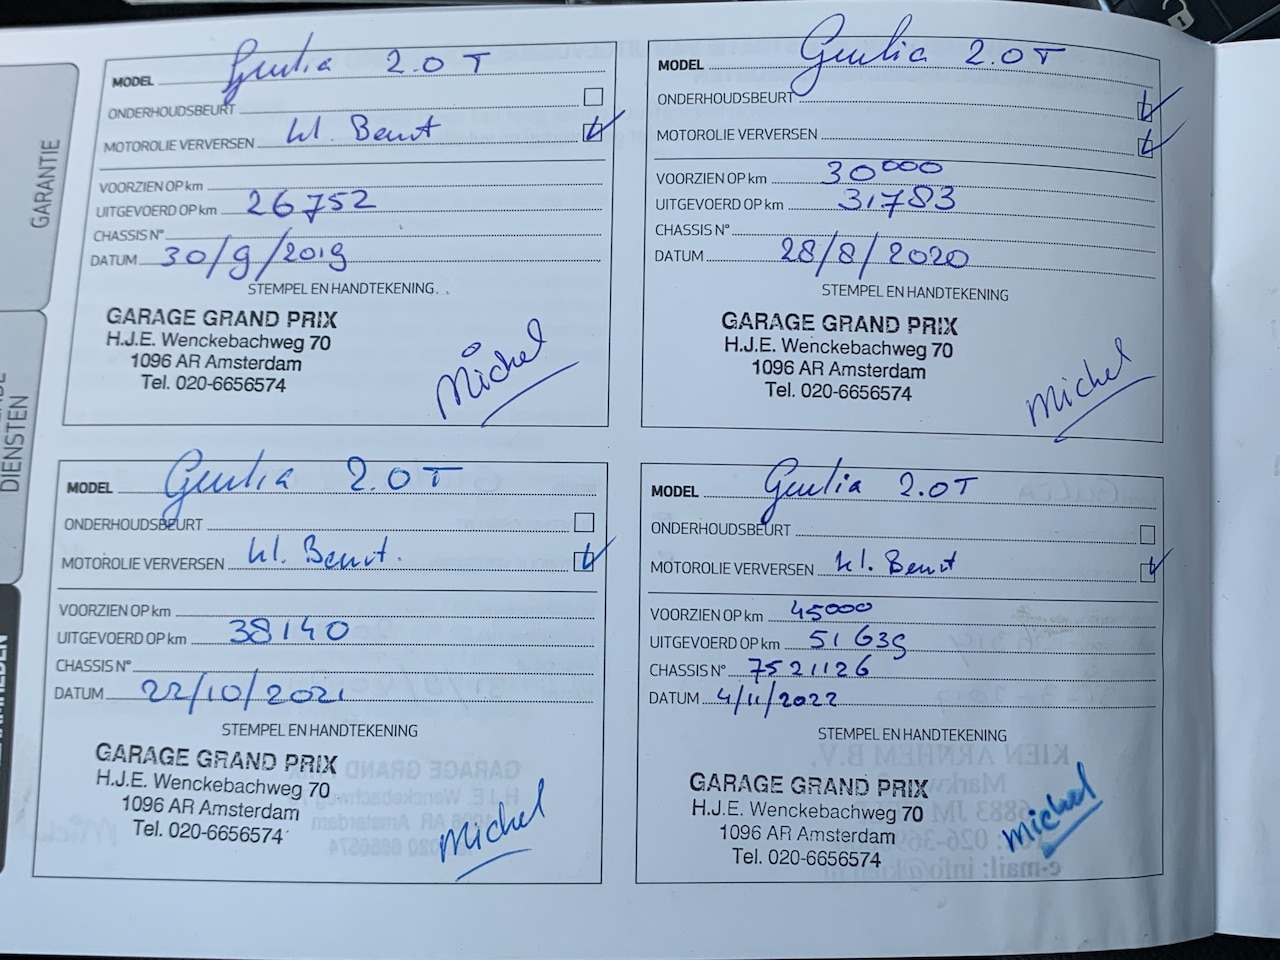 GARANTIE
DIENSTEN
MODEL Giulia 2.0 T
ONDERHOUDSBEURT
MOTOROLIE VERVERSEN kl. Beurt
VOORZIEN OP km
UITGEVOERD OP km 26752
CHASSIS N°
DATUM 30/9/2019
STEMPEL EN HANDTEKENING
GARAGE GRAND PRIX
H.J.E. Wenckebachweg 70
1096 AR Amsterdam
Tel. 020-6656574
Michel
MODEL Giulia 2.0 T
ONDERHOUDSBEURT
MOTOROLIE VERVERSEN
VOORZIEN OP km 30000
UITGEVOERD OP km 31783
CHASSIS N°
DATUM 28/8/2020
STEMPEL EN HANDTEKENING
GARAGE GRAND PRIX
H.J.E. Wenckebachweg 70
1096 AR Amsterdam
Tel. 020-6656574
Michel
MODEL Giulia 2.0 T
ONDERHOUDSBEURT
MOTOROLIE VERVERSEN kl. Beurt.
VOORZIEN OP km
UITGEVOERD OP km 38140
CHASSIS N°
DATUM 22/10/2021
STEMPEL EN HANDTEKENING
GARAGE GRAND PRIX
H.J.E. Wenckebachweg 70
1096 AR Amsterdam
Tel. 020-6656574
Michel
MODEL Giulia 2.0T
ONDERHOUDSBEURT
MOTOROLIE VERVERSEN kl. Beurt
VOORZIEN OP km 45000
UITGEVOERD OP km 51639
CHASSIS N° 7521126
DATUM 4/11/2022
STEMPEL EN HANDTEKENING
GARAGE GRAND PRIX
H.J.E. Wenckebachweg 70
1096 AR Amsterdam
Tel. 020-6656574
Michel